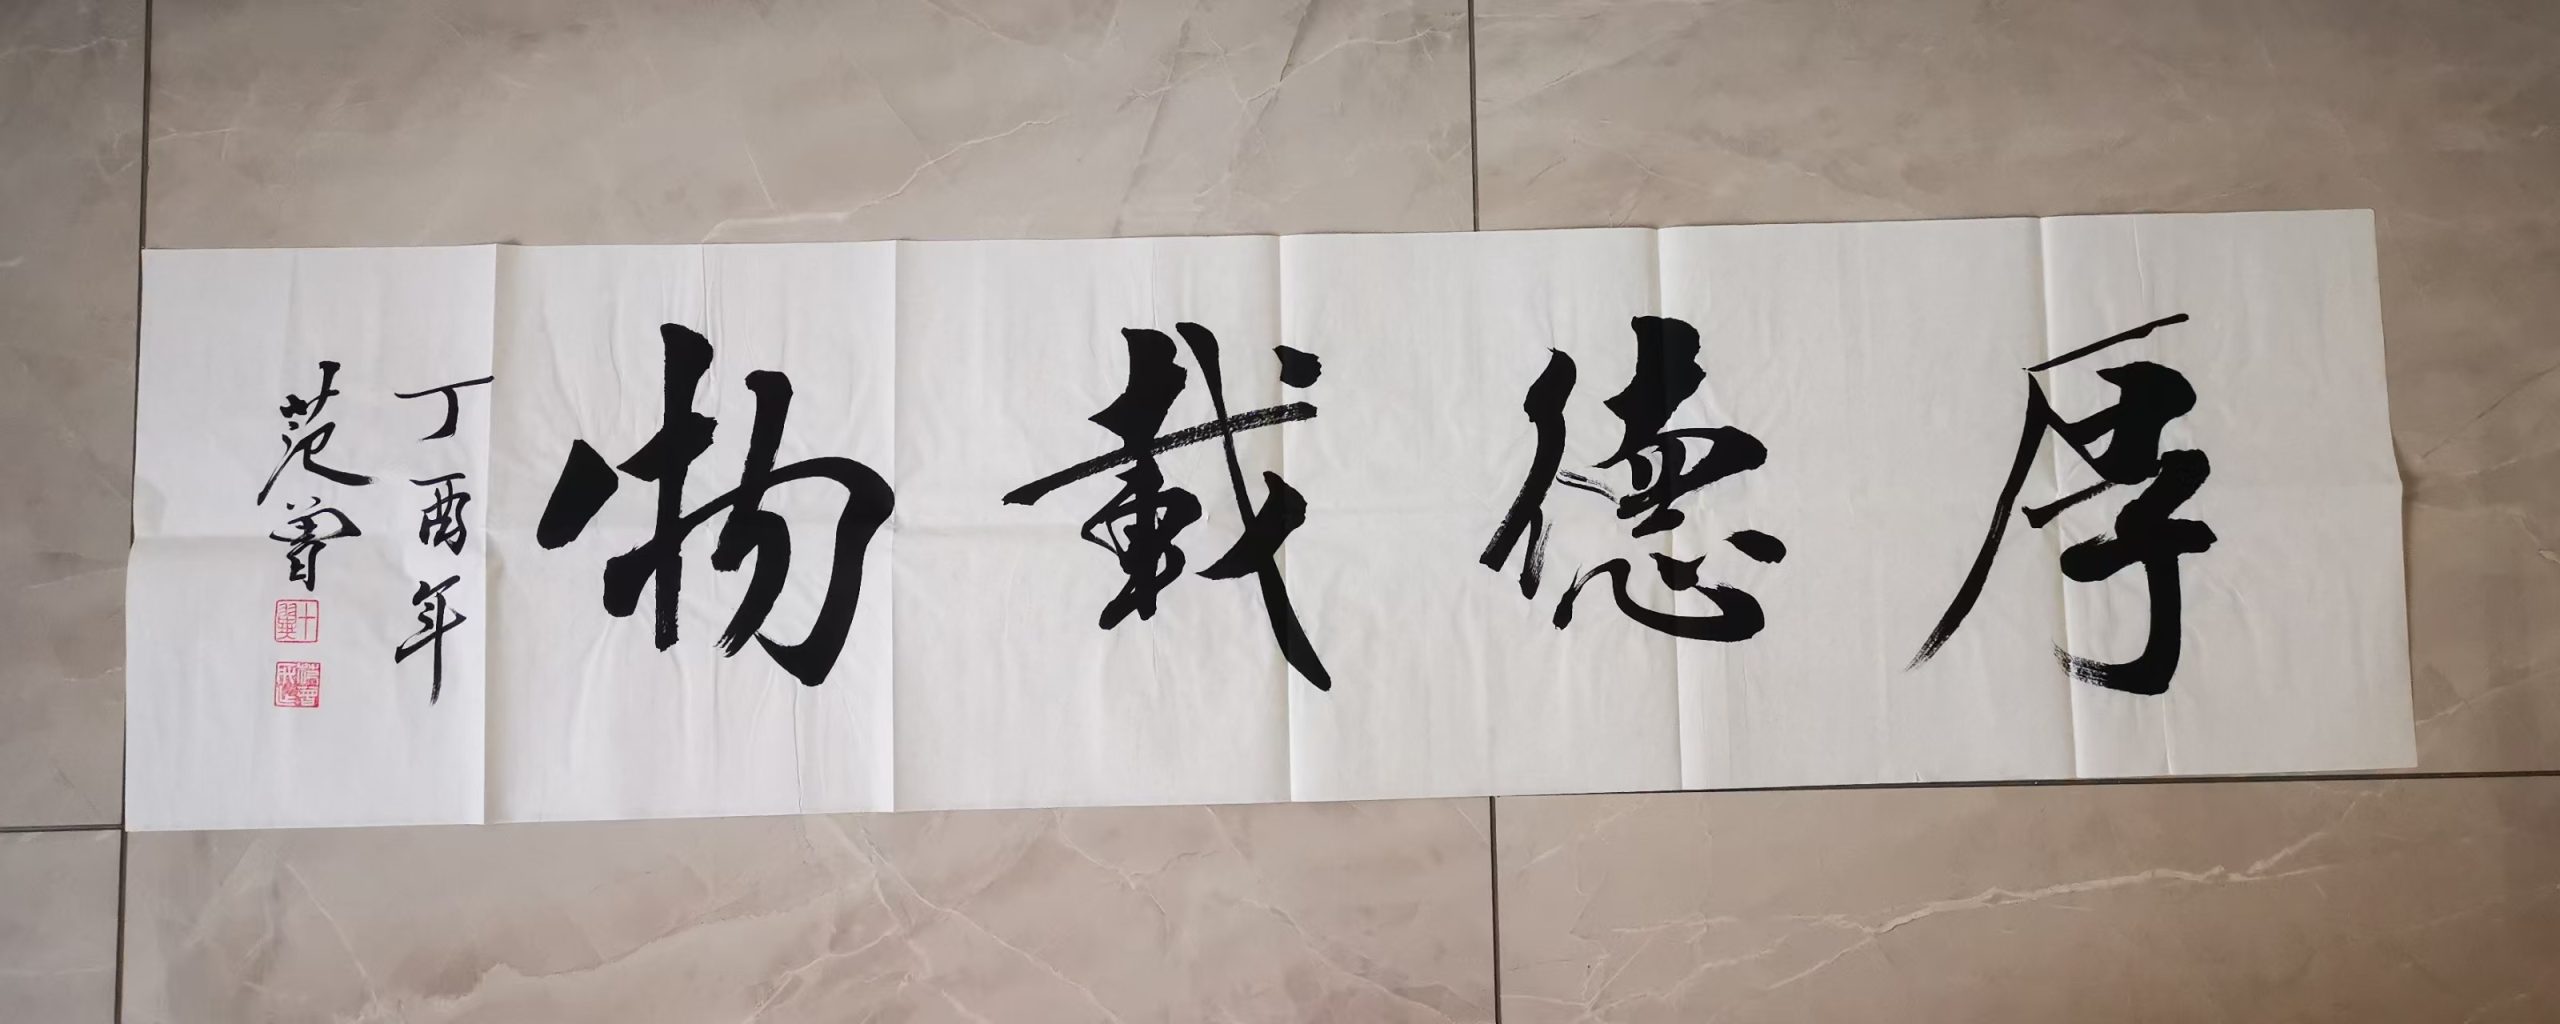 厚德載物
丁酉年
范曾
十翼